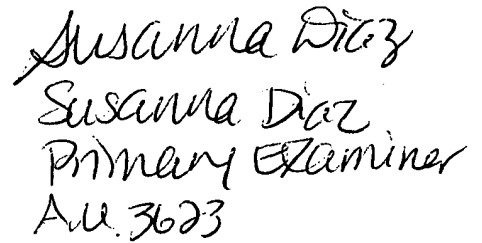 Susanna Diaz
Susanna Diaz
Primary Examiner
A.U. 3623